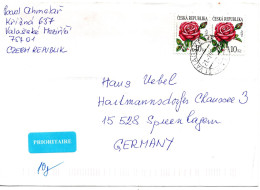 Křižná 657
Valašské Meziříčí
757 01
CZECH REPUBLIC
ČESKÁ REPUBLIKA
ČESKÁ REPUBLIKA
10 Kč
Hans Uebel
Hartmannsdorfer Chaussee 3
15 528 Spreenhagen
GERMANY
PRIORITAIRE